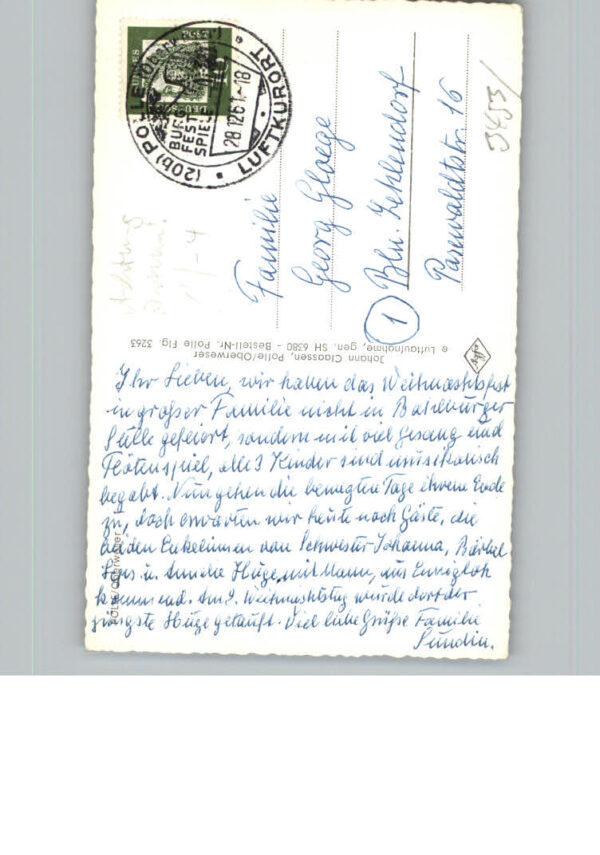 (20b) POLLE (Ober
BURG
FEST
SPIEL
28.12.61.-18
LUFTKURORT
DEUTSCHE
Achtung
3453/
Familie
Georg Gloege
① Bln. Zehlendorf
Pasewaldtstr. 16
Johann Claassen, Polle/Oberweser
Luftaufnahme, gen. SH 6380 - Bestell-Nr. Polle Flg. 3263
Agfa
Polle/Oberweser
Ihr Lieben, wir haben das Weihnachtsfest
in großer Familie nicht in
Stille gefeiert, sondern mit viel Gesang und
Flötenspiel, alle 3 Kinder sind musikalisch
begabt. Nun gehen die bewegten Tage ihrem Ende
zu, doch erwarten wir heute noch Gäste, die
beiden Enkelinnen von Schwester Johanna, Bärbel
u. Huge, mit Mann, aus
kommend. Am 2. Weihnachtstag wurde dort der
jüngste Huge getauft. Viel liebe Grüße Familie
Sundin.